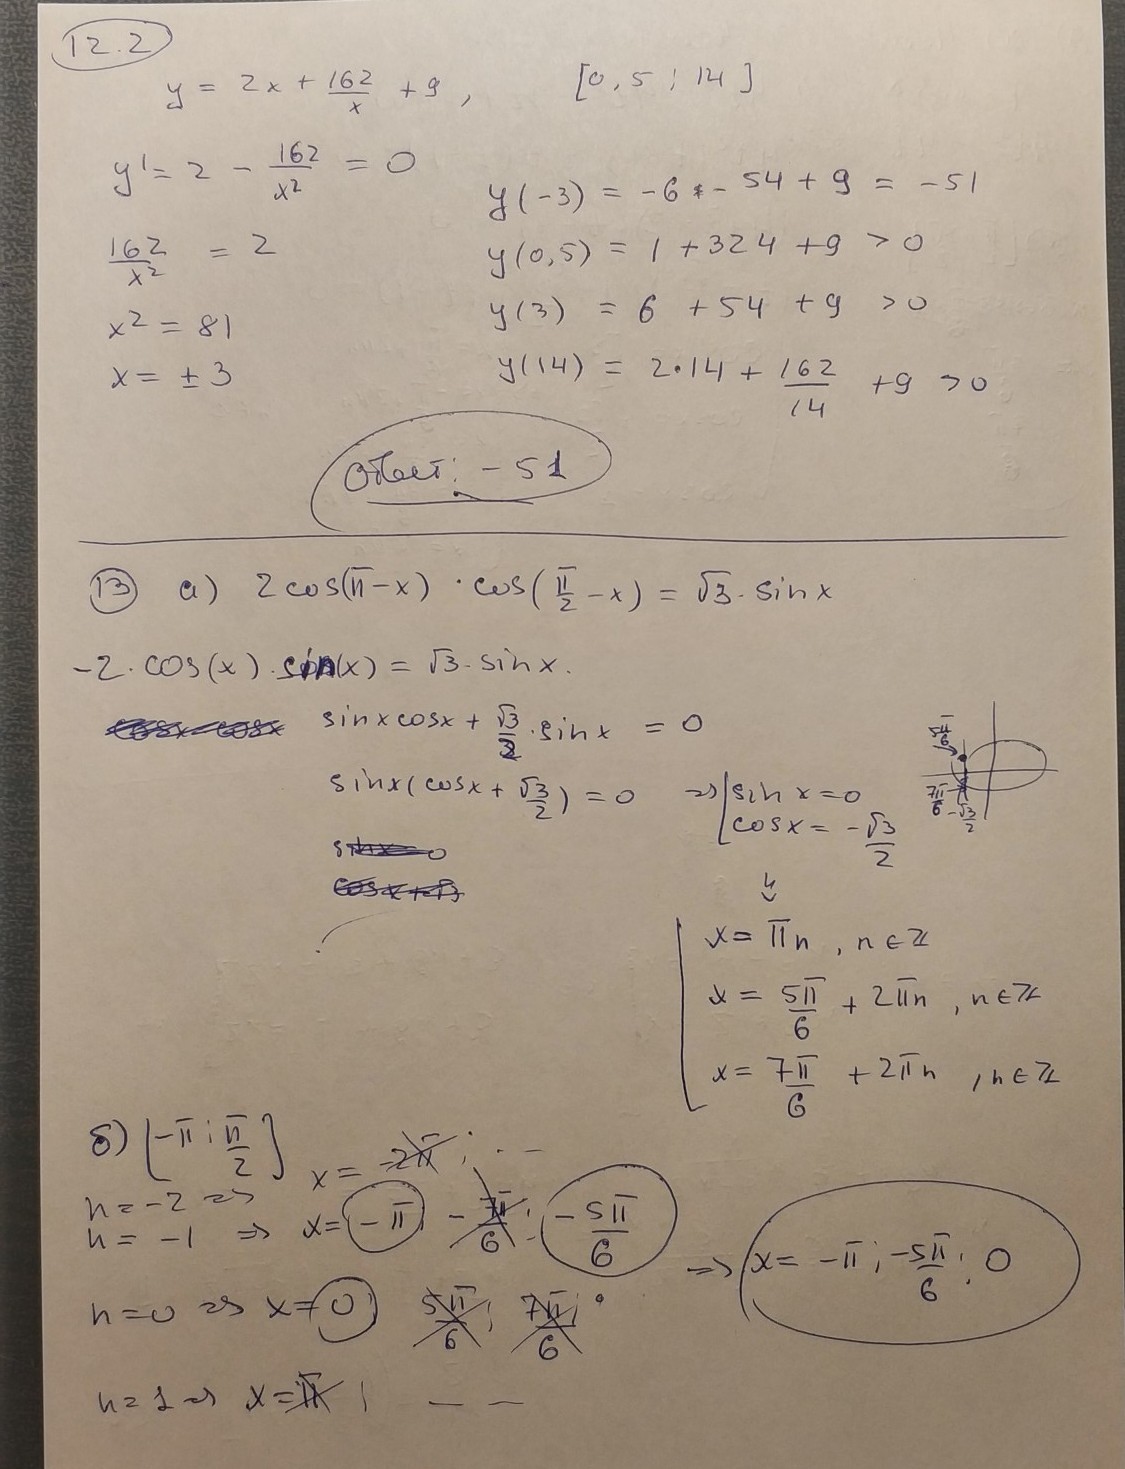 12.2
y = 2x + 162/x + 9, [0,5; 14]
y' = 2 - 162/x² = 0
162/x² = 2
x² = 81
x = ± 3
y(-3) = -6 - 54 + 9 = -51
y(0,5) = 1 + 324 + 9 > 0
y(3) = 6 + 54 + 9 > 0
y(14) = 2·14 + 162/14 + 9 > 0
Ответ: -51
13 а) 2cos(π-x) · cos(π/2 - x) = √3 · sin x
-2 · cos(x) · sin(x) = √3 · sin x.
sin x cos x + √3/2 · sin x = 0
sin x (cos x + √3/2) = 0 => [ sin x = 0
cos x = -√3/2
5π/6
7π/6 -√3/2
sin x = 0
cos x + √3
x = πn, n ∈ Z
x = 5π/6 + 2πn, n ∈ Z
x = 7π/6 + 2πn, n ∈ Z
б) [-π; π/2]
n = -2 => x = -2π; . - -
n = -1 => x = -π; -7π/6; -5π/6
n = 0 => x = 0; 5π/6; 7π/6;
=> x = -π; -5π/6; 0
n = 1 => x = π; - -